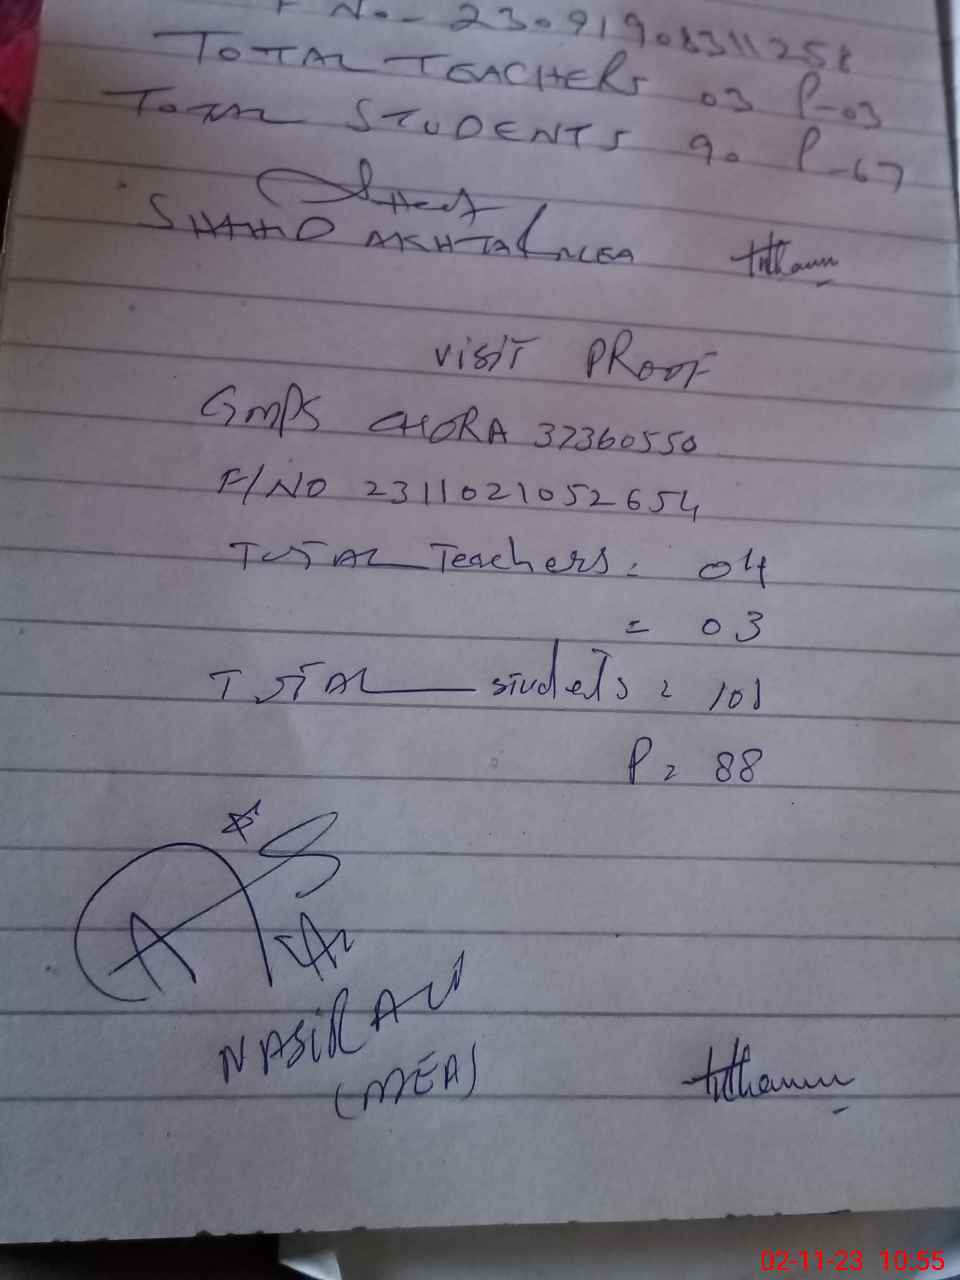 F No.- 23091908311258
TOTAL TEACHERS 03 P-03
TOTAL STUDENTS 90 P-67
SHAHID MEA
VISIT PROOF
GMPS CHORA 37360550
F/NO 2311021052654
TOTAL Teachers = 04
= 03
TOTAL studets = 101
P = 88
NASIR ALI
(MEA)
02-11-23 10:55